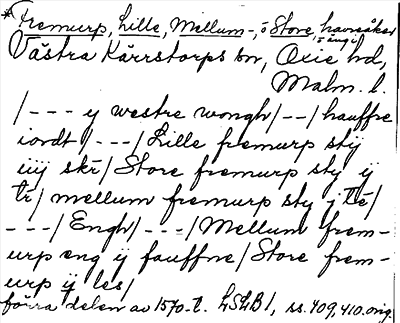 *Fremurp, Lille, Mellum-, o Store, havreåker
o äng i
Västra Kärrstorps sn, Oxie hd,
Malm. l.
/--- y westre wongh/--/hauffre
iordt/---/Lille fremurp stÿ
iiÿ skr/Store fremurp sty ÿ
tr/mellum fremurp sty j tr/
---/Engh/---/Mellum frem-
urp eng ÿ fauffne/Store frem-
urp ÿ les/
förra delen av 1570-t. LSLB1, ss. 409, 410. orig.